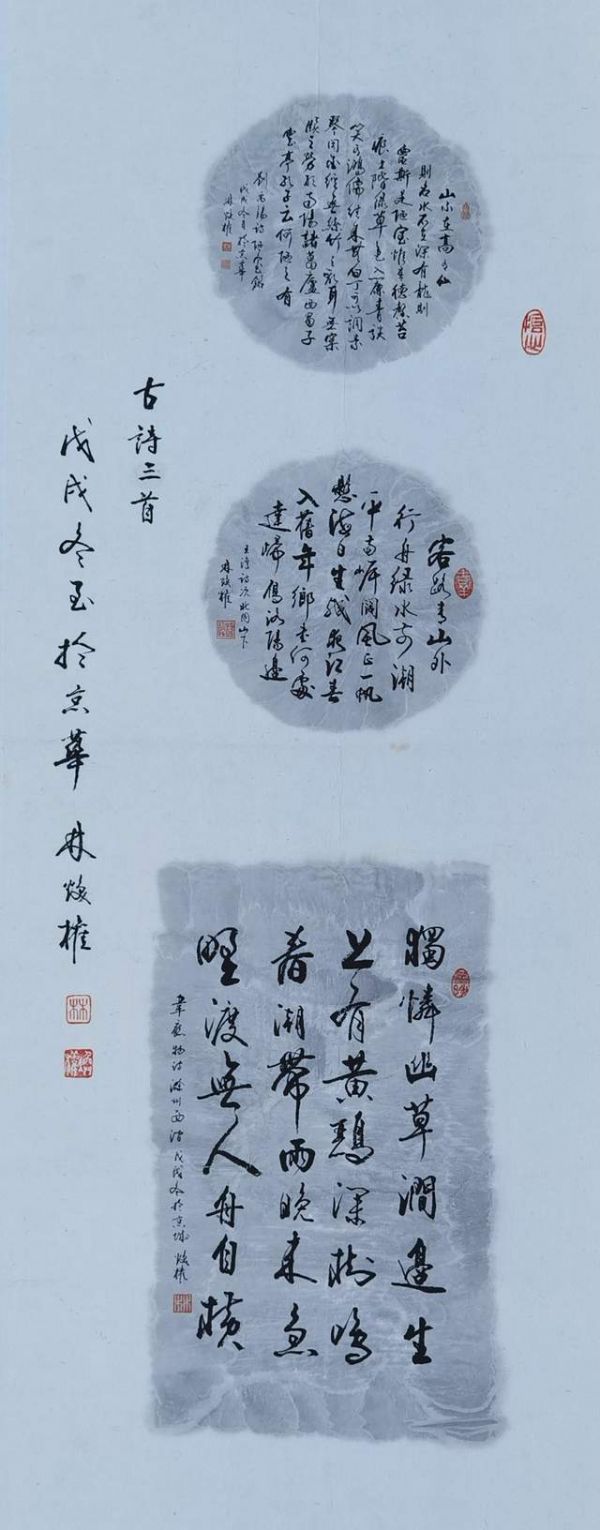 山不在高有仙
則名水不在深有龍則
靈斯是陋室惟吾德馨苔
痕上階綠草色入簾青談
笑有鴻儒往來無白丁可以調素
琴閱金經無絲竹之亂耳無案
牘之勞形南陽諸葛廬西蜀子
雲亭孔子云何陋之有
劉禹錫詩陋室銘
戊戌冬月於京華
林焕權
客路青山外
行舟綠水前潮
平兩岸闊風正一帆
懸海日生殘夜江春
入舊年鄉書何處
達歸雁洛陽邊
王灣詩次北固山下
林焕權
獨憐幽草澗邊生
上有黃鸝深樹鳴
春潮帶雨晚來急
野渡無人舟自橫
韋應物詩滁州西澗戊戌冬於京城 焕權
古詩三首
戊戌冬至於京華 林焕權
林